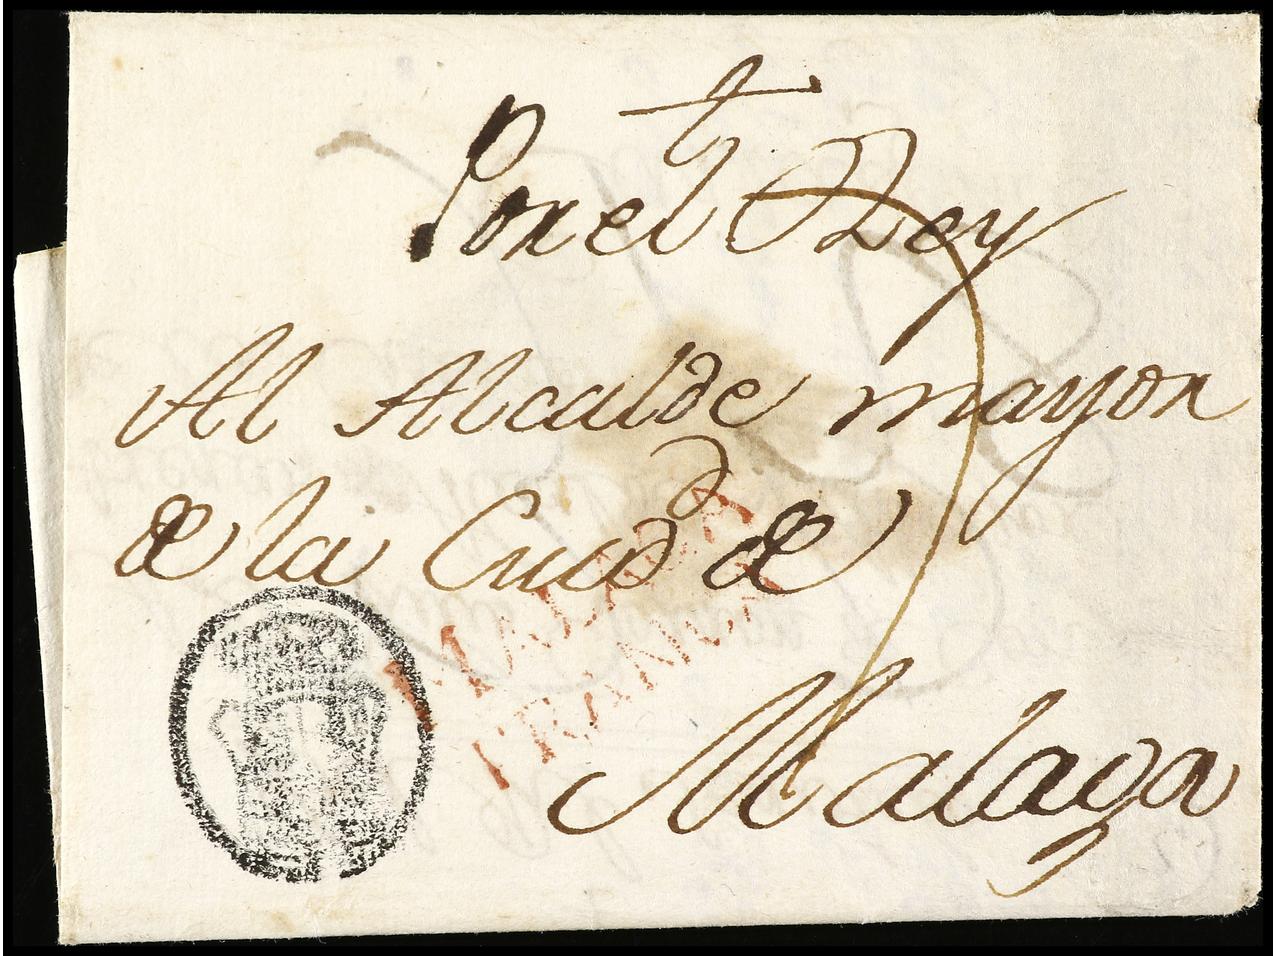 Por el Rey
Al Alcalde mayor
de la Ciud de
MALAGA
FRANCA
Malaga